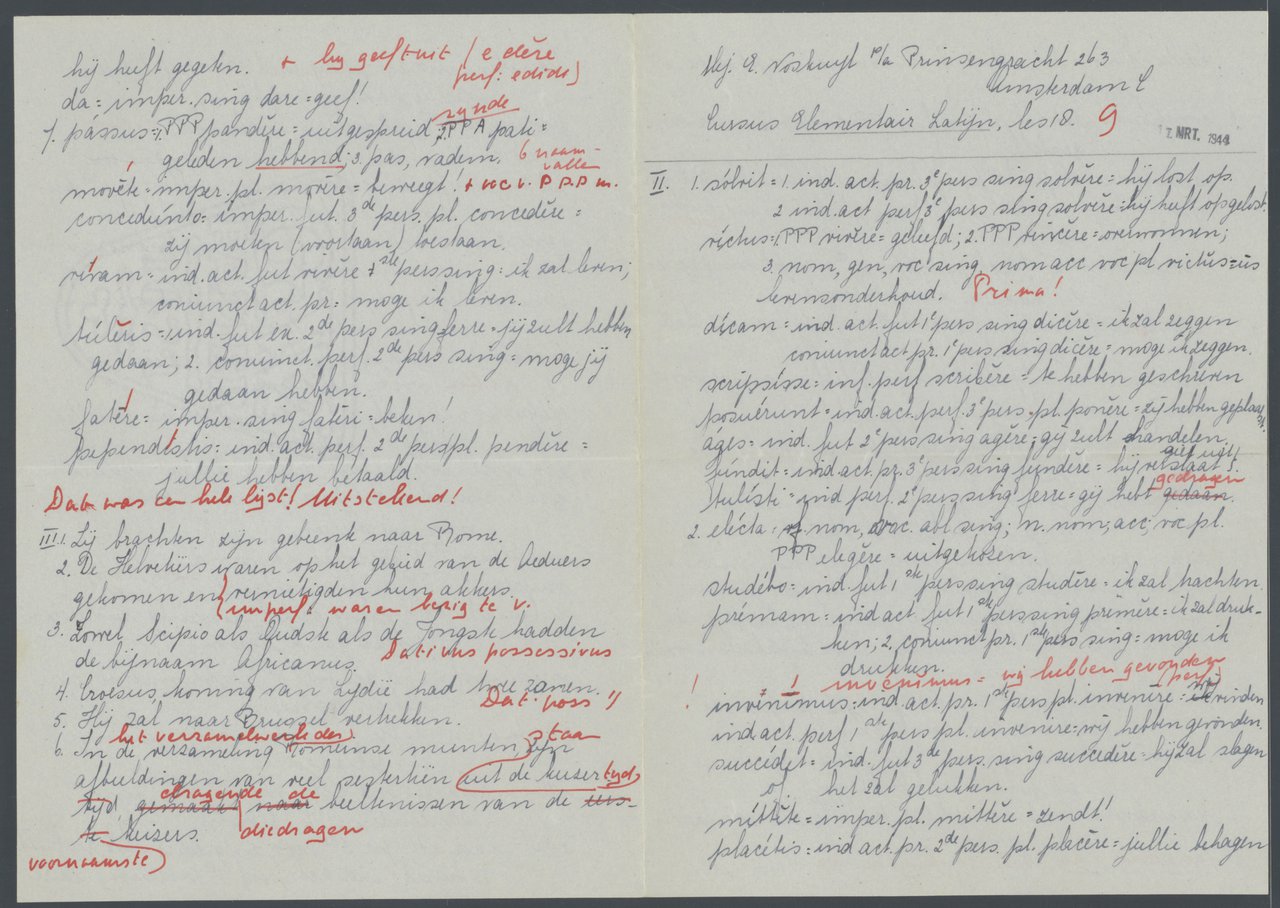 hij heeft gegeten. + hij geeft uit (edĕre
perf: edidi)
da = imper. sing dare = geef!
zynde
1. pássus = 1. PPP pandĕre = uitgespreid, 2. PPA pati =
geleden hebbend; 3. pas, vadem. 6 naam-
vallen
movēte = imper. pl. movēre = beweegt! + voc v. P.P.P. m.
concedúnto = imper. fut. 3de pers. pl. concedĕre =
zij moeten (voortaan) toestaan.
vívam = ind. act. fut vivĕre 1ste pers sing = ik zal leven;
coniunct act. pr = moge ik leven.
túleris = ind. fut ex. 2de pers sing ferre = jij zult hebben
gedaan; 2. coniunct. perf. 2de pers sing = moge jij
gedaan hebben.
fatēre = imper. sing fatēri = beken!
pependístis = ind. act. perf. 2de pers pl. pendĕre =
jullie hebben betaald.
Dat was een hele lijst! Uitstekend!
III. 1. Zij brachten zijn gebeente naar Rome.
2. De Helvetiërs waren op het gebied van de Aeduers
gekomen en vernietigden hun akkers.
imperf: waren bezig te v.
3. Zowel Scipio als Oudste als de Jongste hadden
de bijnaam Africanus. Dativus possessivus
4. Croesus, koning van Lydië had twee zonen.
Dat. poss "
5. Hij zal naar Brussel vertrekken.
het verzamelwerk der staan
6. In de verzameling Romeinse munten zijn
afbeeldingen van veel sestertiën uit de keizer tijd
dragende de
tijd, gemaakt naar beeltenissen van de eers-
te keizers. die dragen
voornaamste
Mej. E. Voskuyl p/a Prinsengracht 263
Amsterdam C
Cursus Elementair Latijn, les 18. 9
MRT. 1944
II. 1. sólvit = 1. ind. act. pr. 3e pers sing solvĕre = hij lost op.
2 ind. act perf 3e pers sing solvĕre = hij heeft opgelost.
víctus = 1. PPP vivĕre = geleefd; 2. PPP vincĕre = overwonnen;
3. nom, gen, voc sing, nom acc voc pl victus = us
levensonderhoud. Prima!
dícam = ind. act. fut 1e pers sing dicĕre = ik zal zeggen
coniunct act pr. 1e pers sing dicĕre = moge ik zeggen.
scripsísse = inf. perf scribĕre = te hebben geschreven
posuérunt = ind. act. perf. 3e pers. pl. ponĕre = zij hebben geplaatst.
áges = ind. fut 2e pers sing agĕre = gij zult handelen.
giet uit!
fúndit = ind. act. pr. 3e pers sing fundĕre = hij verslaat!
gedragen
tulísti = ind perf. 2e pers sing ferre = gij hebt gedaan.
2. elécta = nom, voc. abl sing; n. nom, acc, voc pl.
PPP elegĕre = uitgekozen.
studébo = ind. fut 1ste pers sing studēre = ik zal trachten
prémam = ind act. fut 1ste pers sing premĕre = ik zal druk-
ken; 2. coniunct pr. 1ste pers sing = moge ik
drukken.
! ! invēnimus = wij hebben gevonden
(perf)
invénimus = ind act. pr. 1ste pers pl. invenire = wij vinden
ind act. perf 1ste pers pl. invenire = wij hebben gevonden.
succédet = ind. fut 3de pers. sing succedĕre = hij zal slagen
of het zal gelukken.
míttĕte = imper. pl. mittĕre = zendt!
placétis = ind act. pr. 2de pers. pl. placēre = jullie behagen